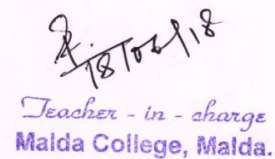 18/06/18
Teacher - in - charge
Malda College, Malda.